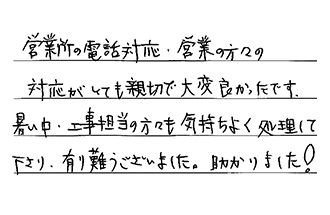 営業所の電話対応・営業の方々の
対応がとても親切で大変良かったです。
暑い中・工事担当の方々も気持ちよく処理して
下さり、有り難うございました。助かりました!